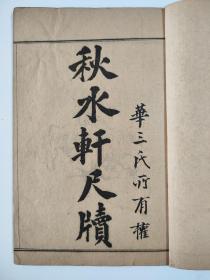 華三氏所有權
秋水軒尺牘